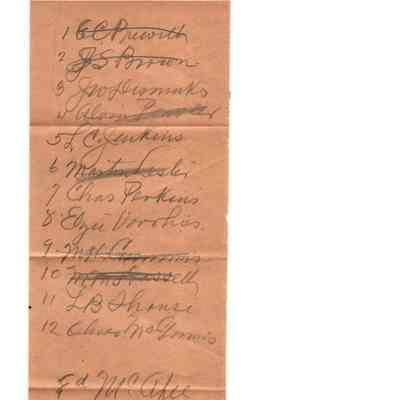 1 E C Prewitt
2 J S Brown
3 Jno Dismukes
4 Alvin
5 L. C. Jenkins
6 Martin Leslie
7 Chas Perkins
8 Elzie Voorhies.
9
10
11 L B Shouse
12 Chas McGinnis
Ed McAfee